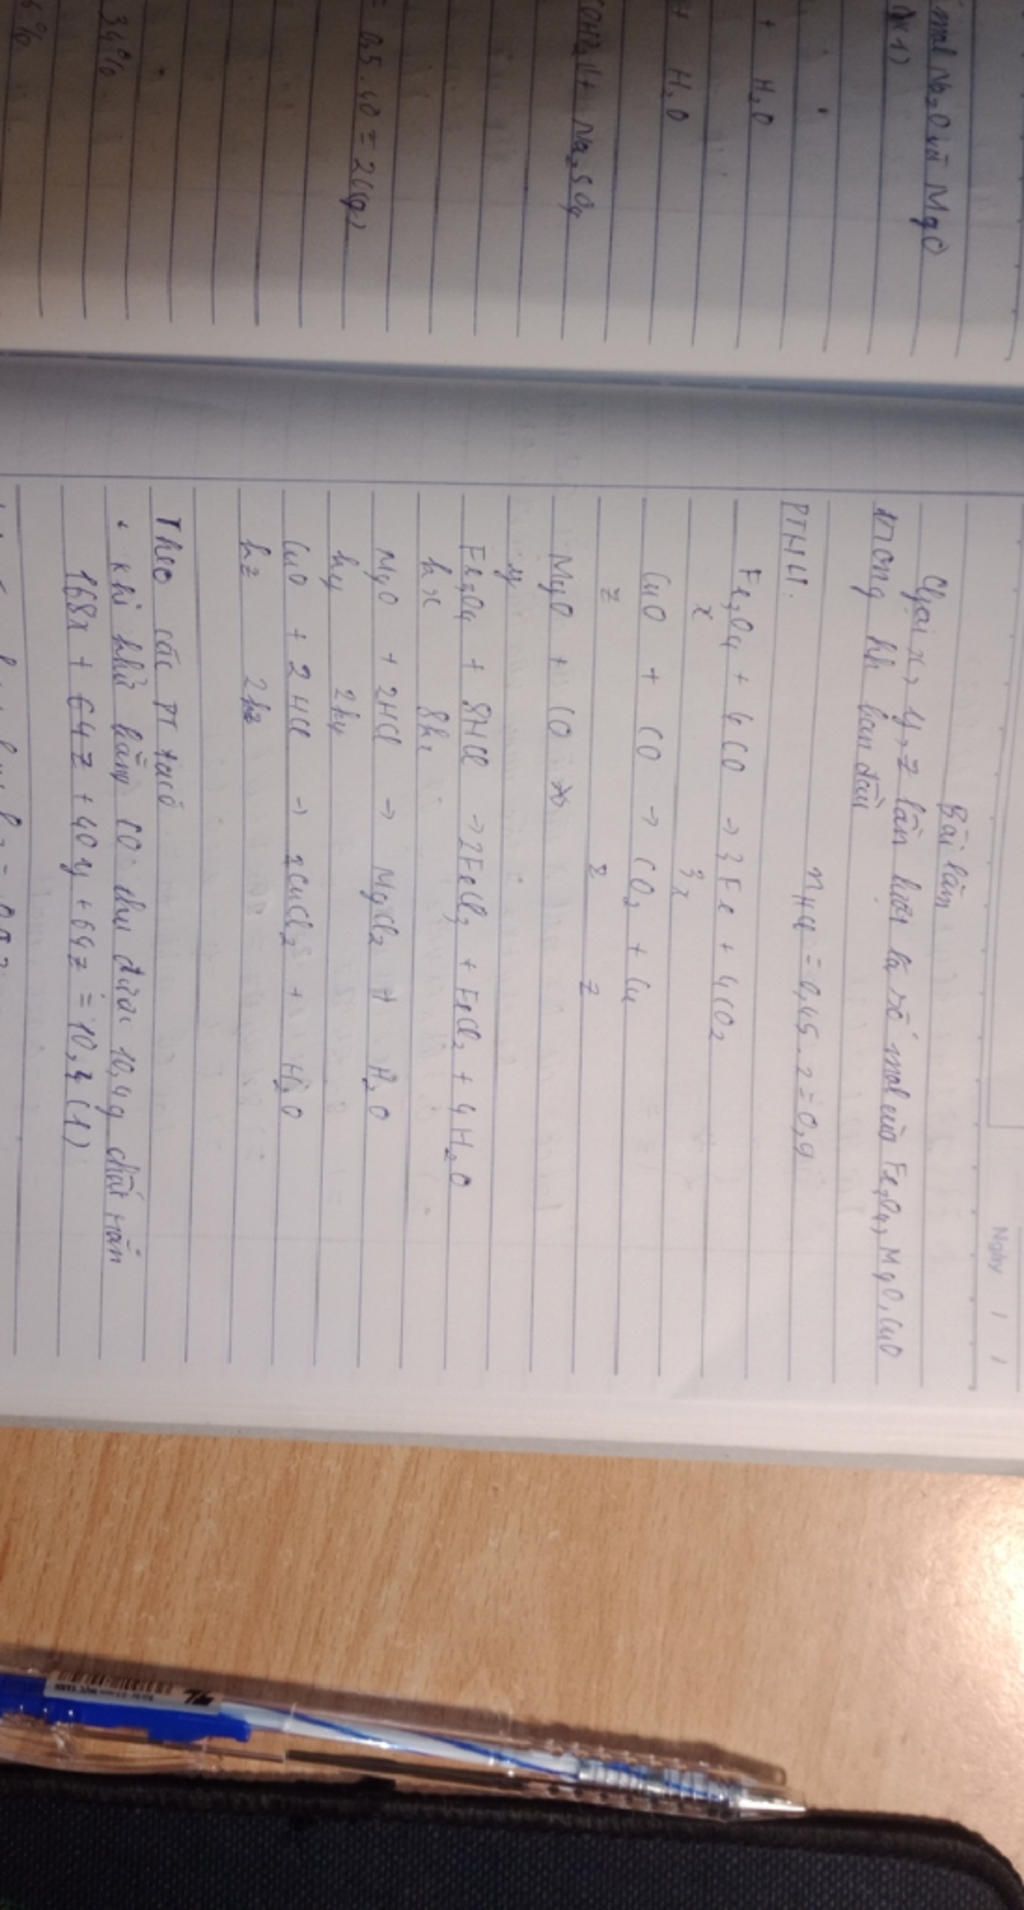 mol Na2O và MgO
+ H2O
+ H2O
+ Na2SO4
= 0,5 . 40 = 20(g)
34%
%
Ngày / /
Bài làm
Gọi x, y, z lần lượt là số mol của Fe3O4, MgO, CuO
trong hh ban đầu
nHCl = 0,45 . 2 = 0,9
PTHH:
Fe3O4 + 4CO → 3Fe + 4CO2
x 3x
CuO + CO → CO2 + Cu
z z z
MgO + CO
y
Fe3O4 + 8HCl → 2FeCl3 + FeCl2 + 4H2O
kx 8kx
MgO + 2HCl → MgCl2 + H2O
ky 2ky
CuO + 2HCl → CuCl2 + H2O
kz 2kz
Theo các PT ta có
khi khử bằng CO thu được 10,4g chất rắn
168x + 64z + 40y + 64z = 10,4 (1)